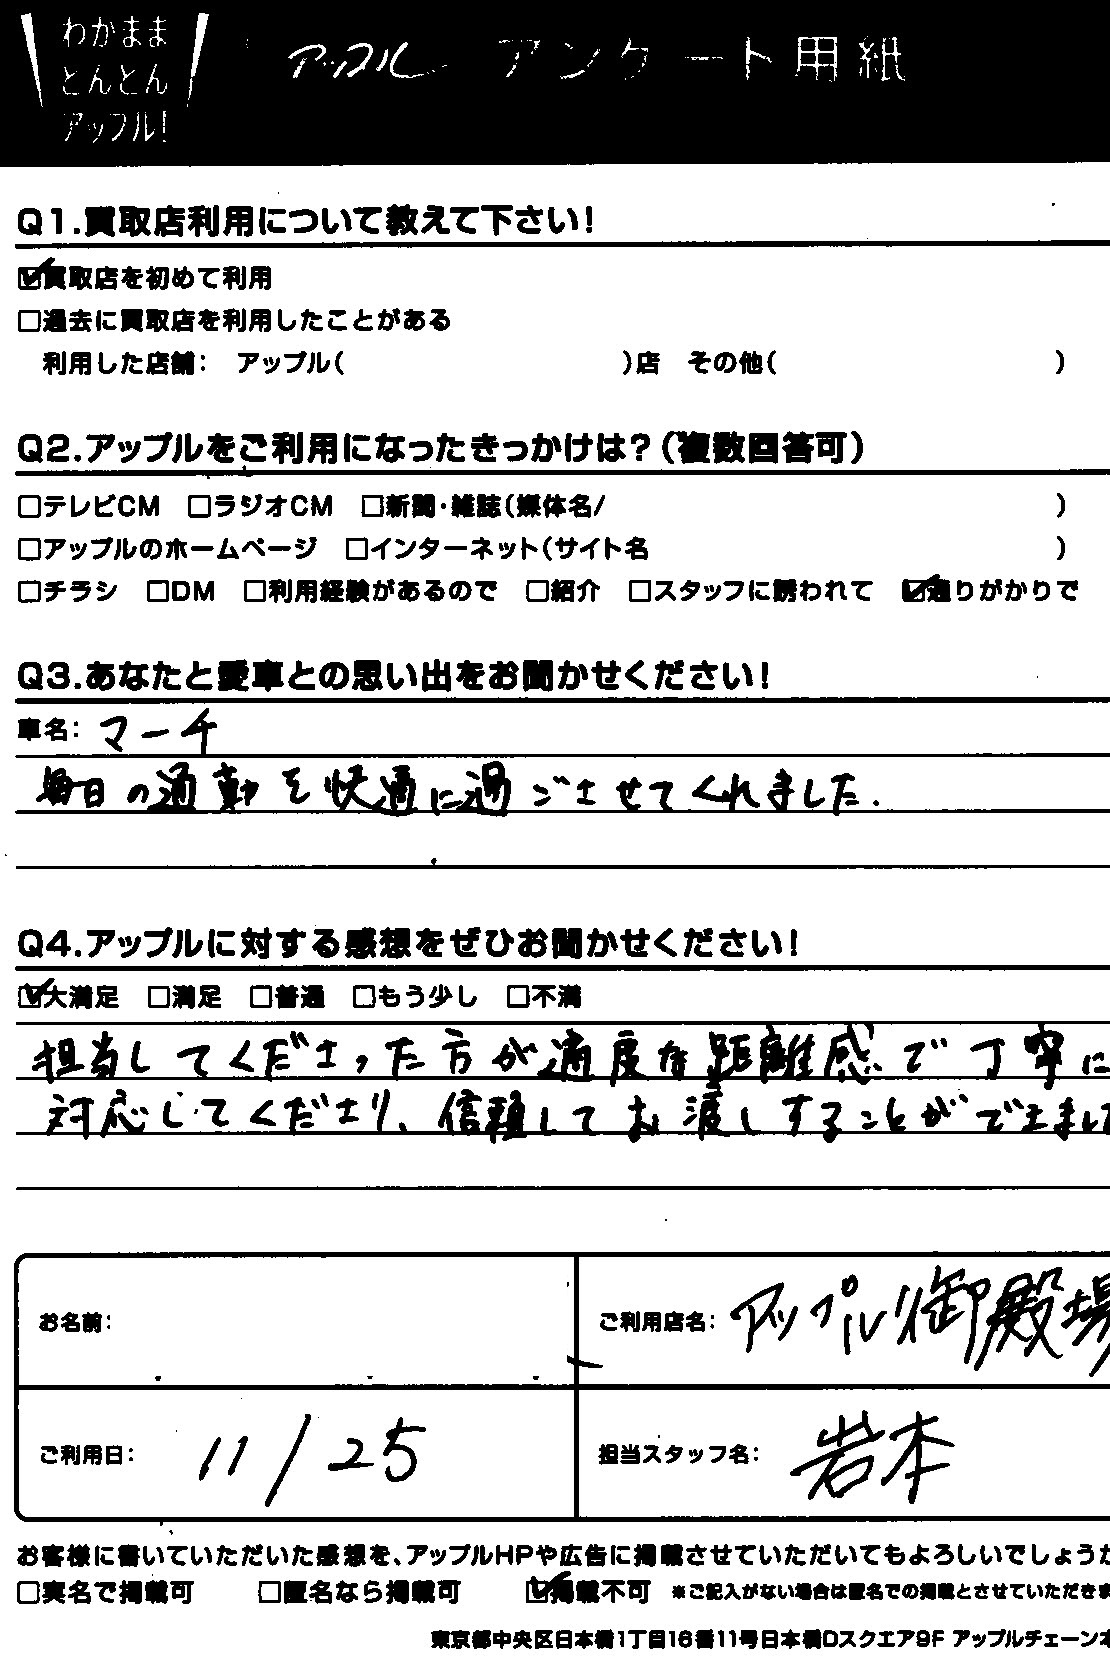 わかまま
とんとん
アップル!
アップル アンケート用紙
Q1.買取店利用について教えて下さい!
☑買取店を初めて利用
□過去に買取店を利用したことがある
利用した店舗: アップル( )店 その他( )
Q2.アップルをご利用になったきっかけは?(複数回答可)
□テレビCM □ラジオCM □新聞・雑誌(媒体名/ )
□アップルのホームページ □インターネット(サイト名 )
□チラシ □DM □利用経験があるので □紹介 □スタッフに誘われて ☑通りがかりで
Q3.あなたと愛車との思い出をお聞かせください!
車名: マーチ
毎日の通勤を快適に過ごさせてくれました.
Q4.アップルに対する感想をぜひお聞かせください!
☑大満足 □満足 □普通 □もう少し □不満
担当してくださった方が適度な距離感で丁寧に
対応してくださり、信頼してお渡しすることができまし
お名前:
ご利用店名: アップル御殿場
ご利用日: 11/25
担当スタッフ名: 岩本
お客様に書いていただいた感想を、アップルHPや広告に掲載させていただいてもよろしいでしょうか
□実名で掲載可 □匿名なら掲載可 ☑掲載不可 ※ご記入がない場合は匿名での掲載とさせていただきま
東京都中央区日本橋1丁目16番11号日本橋Dスクエア9F アップルチェーン本